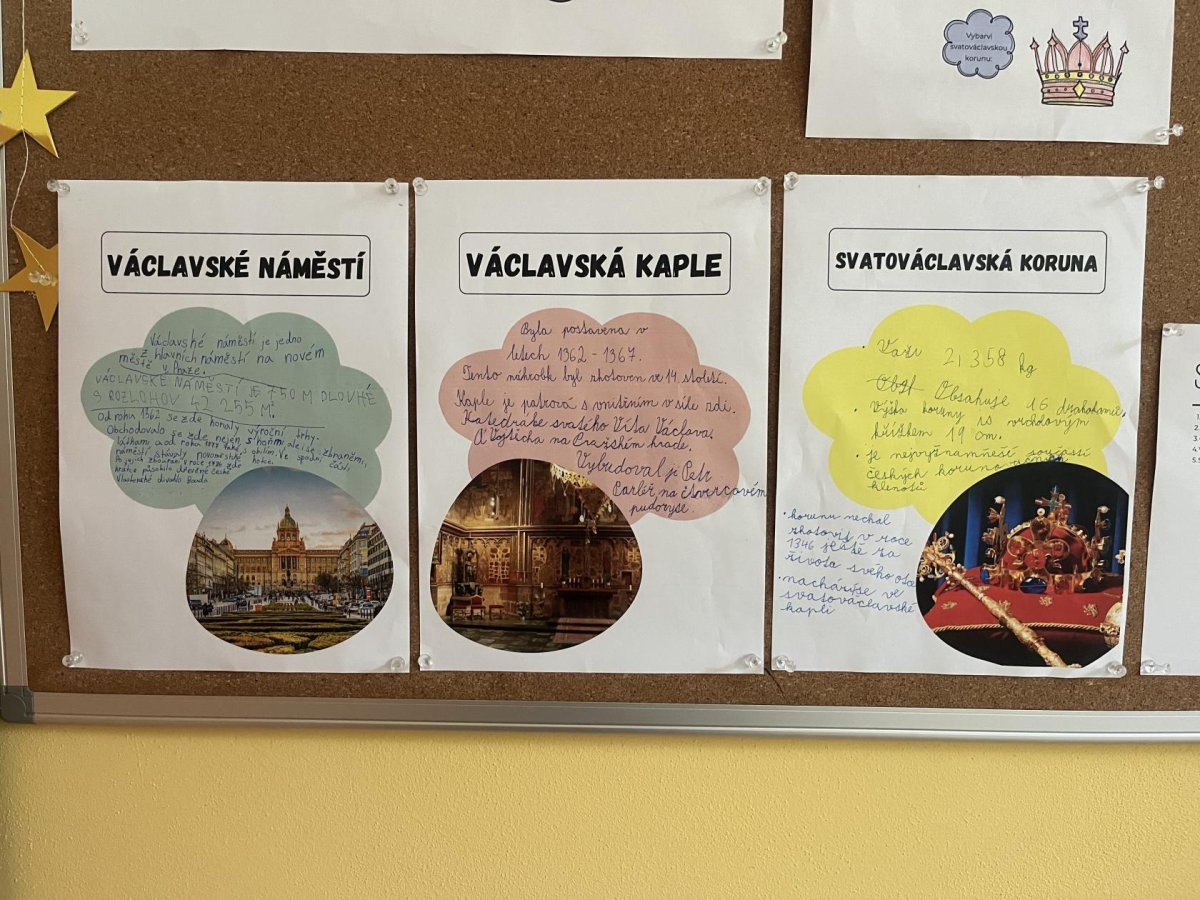 Vybarvi
svatováclavskou
korunu:
VÁCLAVSKÉ NÁMĚSTÍ
Václavské náměstí je jedno
z hlavních náměstí na novém
městě v Praze.
VÁCLAVSKÉ NÁMĚSTÍ JE 750 M DLOUHÉ
S ROZLOHOV 42 255 M².
Od roku 1362 se zde konaly výroční trhy.
Obchodovalo se zde nejen s koňmi, ale i se zbraněmi,
látkami a od roku 1877 také s obilím. Ve spodní části
náměstí stávaly novoměstské
Po jejich zbourání v roce 1786 zde
krátce působilo dřevěné české
Vlastenské divadlo Bouda
VÁCLAVSKÁ KAPLE
Byla postavena v
letech 1362 - 1367.
Tento náhrobk byl zhotoven ve 14. století.
Kaple je patrová s vnitřním v síle zdi.
Katedrále svatého Víta Václava
A Vojtěcha na Pražském hradě.
Vybudoval je Petr
Parléř na čtvercovém
pudoryse.
SVATOVÁCLAVSKÁ KORUNA
· Važi 2,358 kg
Obsahuje 16 drahokamů.
· Výška koruny is vrcholovým
křížkem 19 cm.
· je nejvýznamnější součastí
českých korunovačních
klenotů
· korunu nechal
zhotovit v roce
1346 ještě za
života svého otce
· nacházíse ve
svatováclavské
kapli